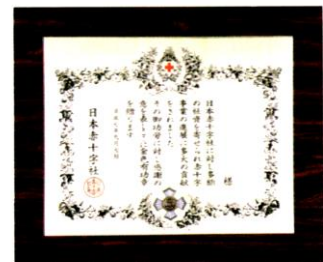 様
日本赤十字社に対し多額
の社資を寄せられ赤十字
事業の進展に多大の貢献
をされました
その御功労に対し感謝の
意を表しここに金色有功章
を贈ります
日本赤十字社